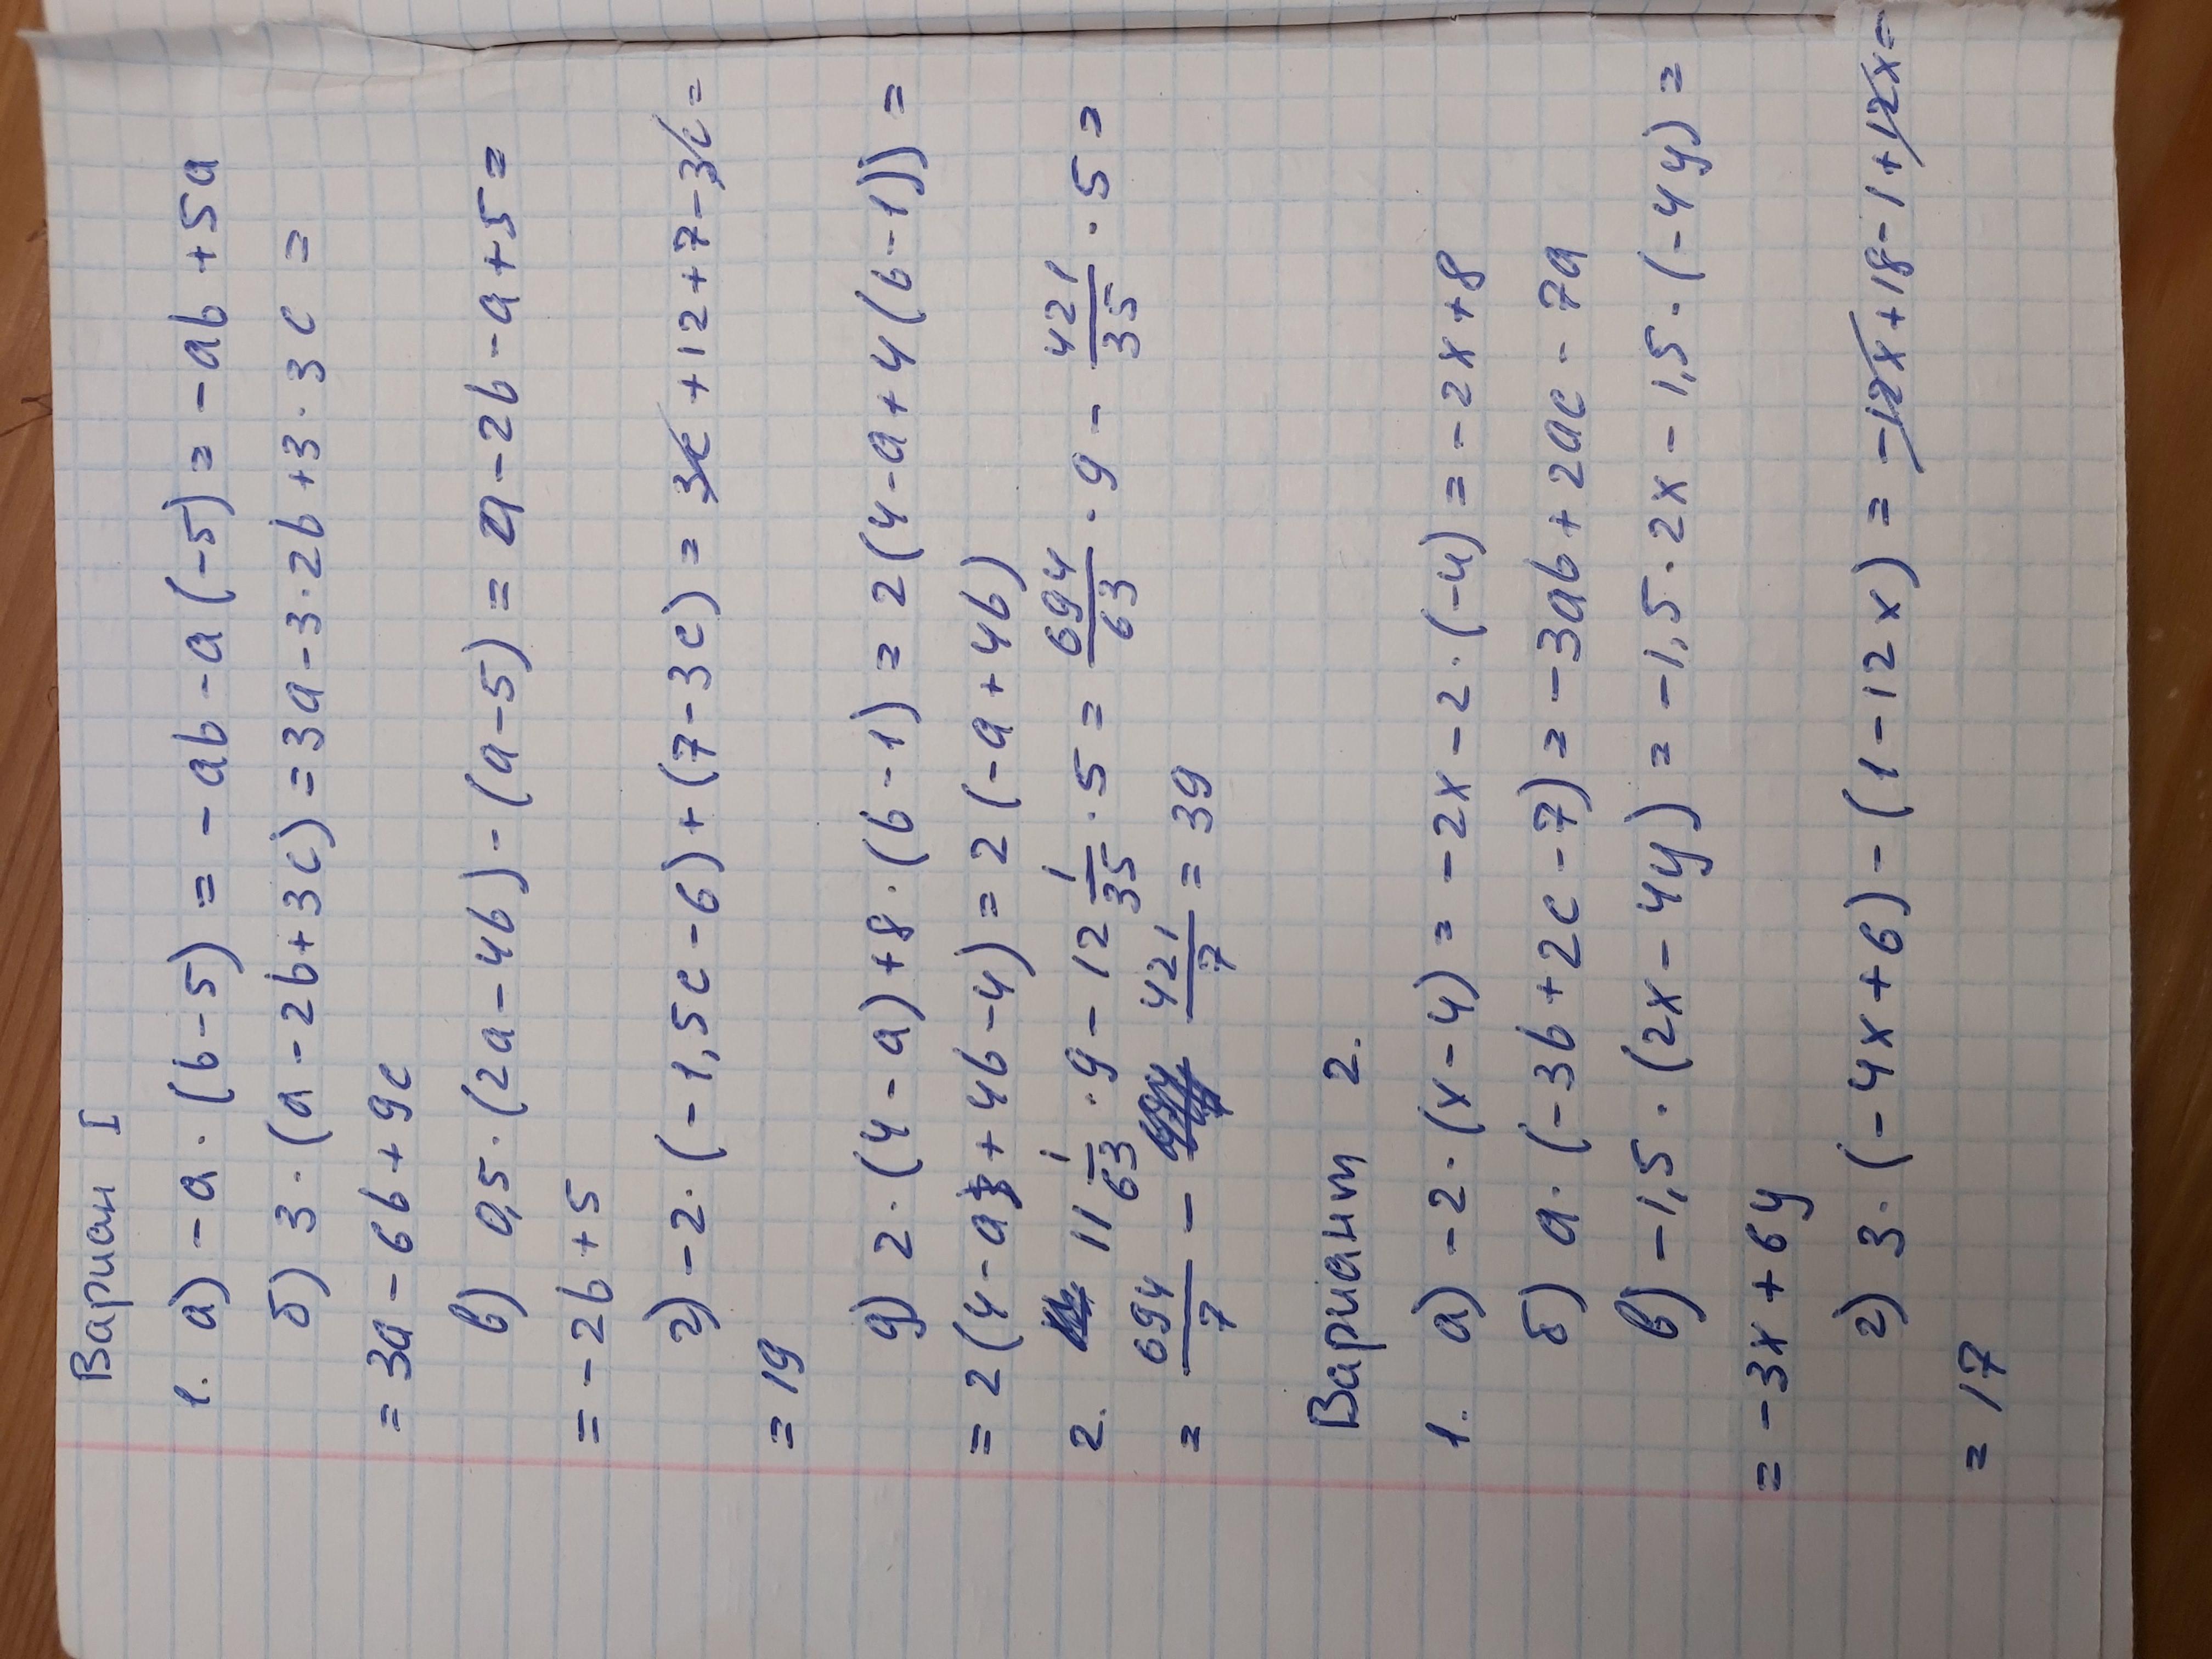 Вариан I
1. а) -a·(b-5) = -ab-a(-5) = -ab+5a
б) 3·(a-2b+3c) = 3a-3·2b+3·3c =
= 3a-6b+9c
в) 0,5·(2a-4b)-(a-5) = a-2b-a+5 =
= -2b+5
г) -2·(-1,5c-6)+(7-3c) = 3c+12+7-3c =
= 19
д) 2·(4-a)+8·(b-1) = 2(4-a+4(b-1)) =
= 2(4-a+4b-4) = 2(-a+4b)
2. 11 1/63 · 9 - 12 1/35 · 5 = 694/63 · 9 - 421/35 · 5 =
= 694/7 - 421/7 = 39
Вариант 2.
1. а) -2·(x-4) = -2x-2·(-4) = -2x+8
б) a·(-3b+2c-7) = -3ab+2ac-7a
в) -1,5·(2x-4y) = -1,5·2x-1,5·(-4y) =
= -3x+6y
г) 3·(-4x+6)-(1-12x) = -12x+18-1+12x=
= 17